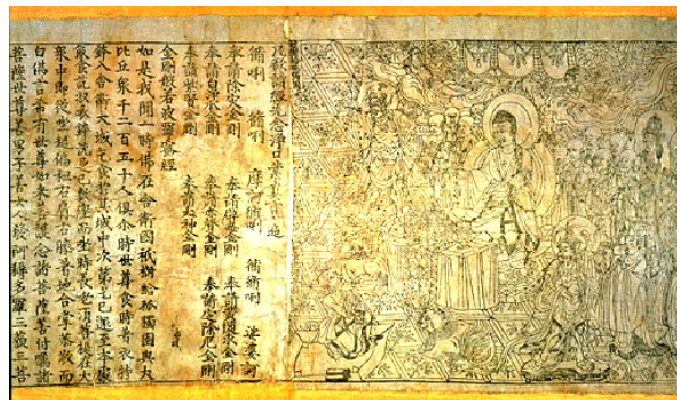 凡欲讀經先念淨口業真言 遍
脩唎 脩唎 摩訶脩唎 脩脩唎 娑婆訶
奉請除灾金剛 奉請辟毒金剛 奉請黃隨求金剛
奉請白淨水金剛 奉請赤聲金剛 奉請定除厄金剛
奉請紫賢金剛 奉請大神金剛
金剛般若波羅蜜經
如是我聞一時佛在舍衛國祇樹給孤獨園與大
比丘眾千二百五十人俱尒時世尊食時著衣持
鉢入舍衛大城乞食於其城中次第乞已還至本處
飯食訖收衣鉢洗足已敷座而坐時長老須菩提在大
眾中即從座起偏袒右肩右膝著地合掌恭敬而
白佛言希有世尊如來善護念諸菩薩善付囑諸
菩薩世尊善男子善女人發阿耨多羅三藐三菩